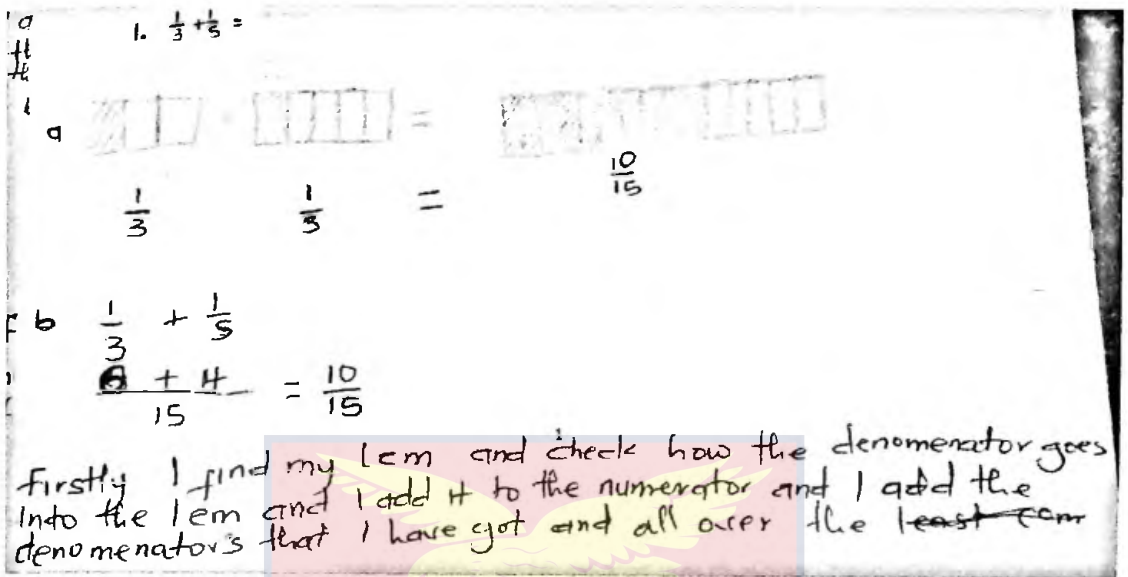 a
1. 1/3 + 1/5 =
a
=
10/15
1/3 1/5 =
b 1/3 + 1/5
6 + 4 / 15 = 10/15
Firstly I find my lcm and check how the denomenator goes
Into the lcm and I add it to the numerator and I add the
denomenators that I have got and all over the least com